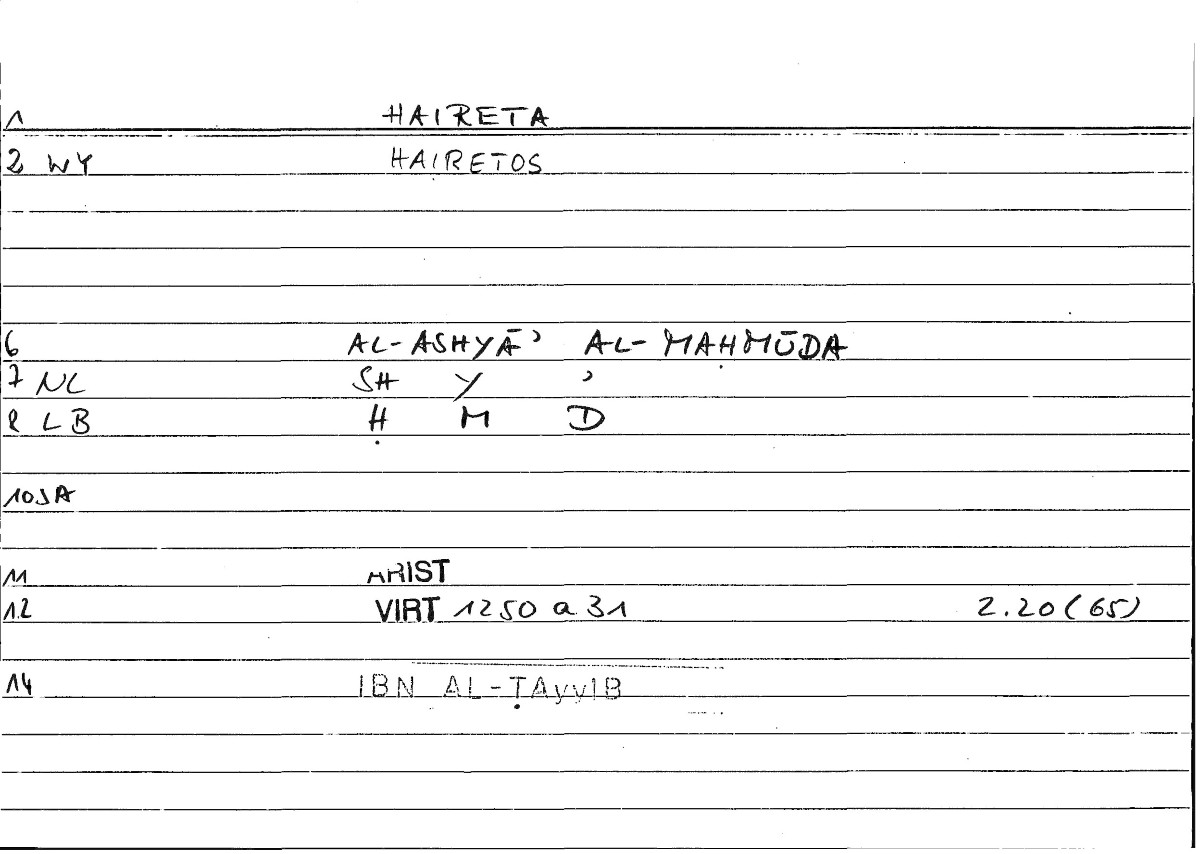 1 HAIRETA
2 WY HAIRETOS
6 AL-ASHYĀʾ AL-MAḤMŪDA
7 NL SH Y ʾ
8 LB Ḥ M D
10 JA
11 ARIST
12 VIRT 1250 a 31 2.20 (65)
14 IBN AL-ṬAyyIB